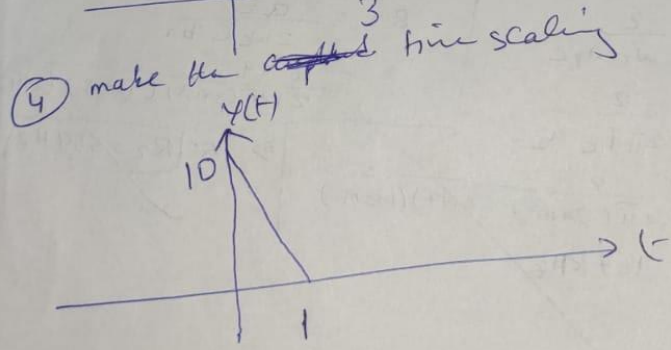 3
④ make the time scaling
y(t)
10
t
1